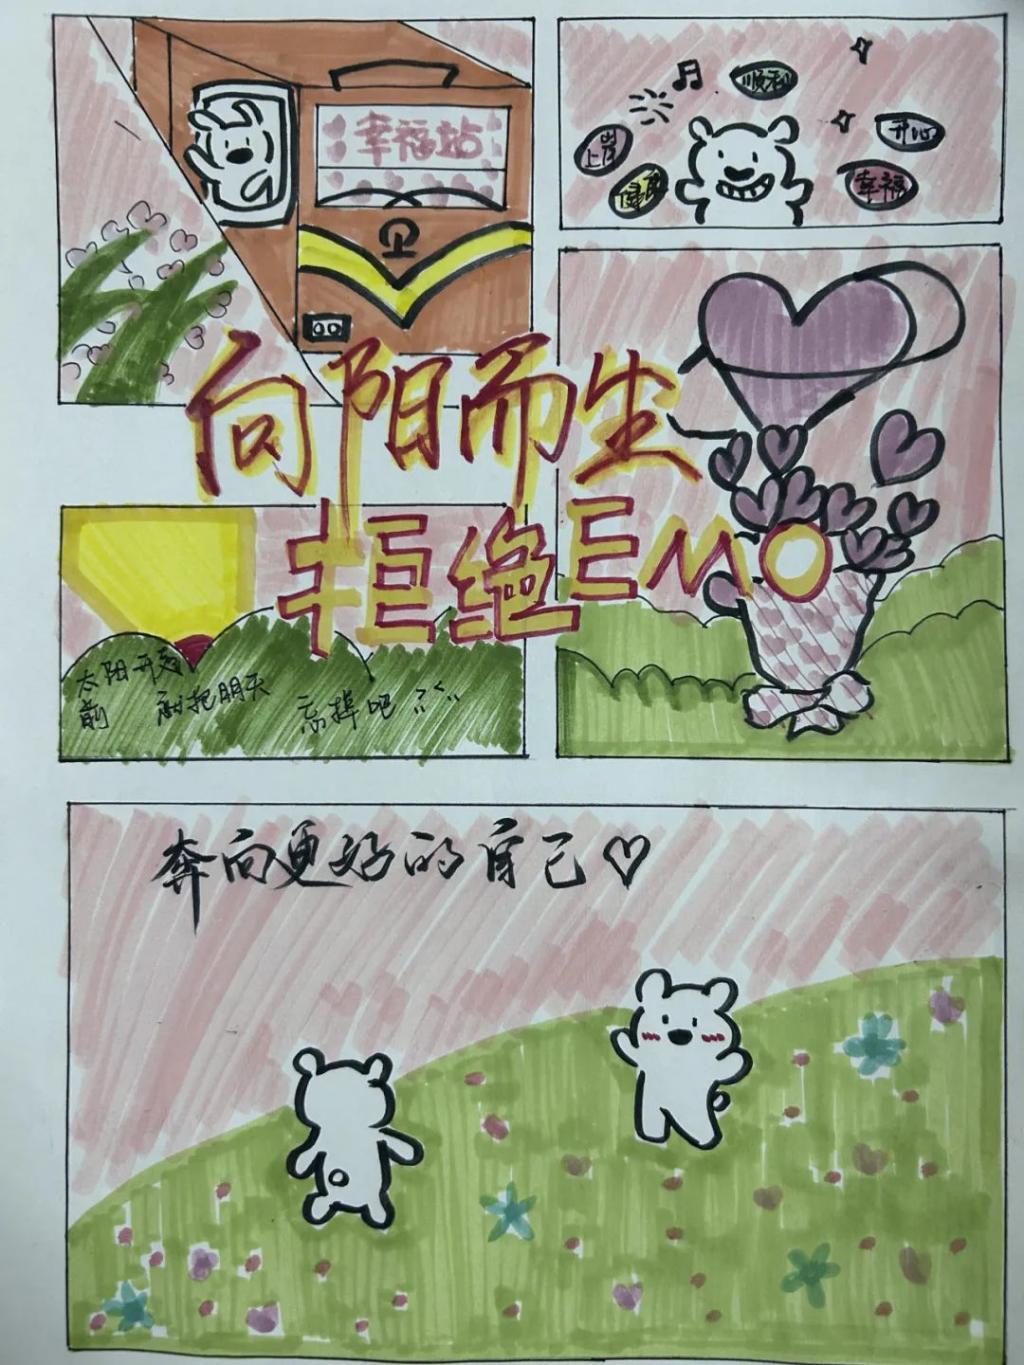 幸福站
顺利
上岸
开心
健康
幸福
向阳而生
拒绝EMO
太阳升起
前 就把明天
忘掉吧
奔向更好的自己♡